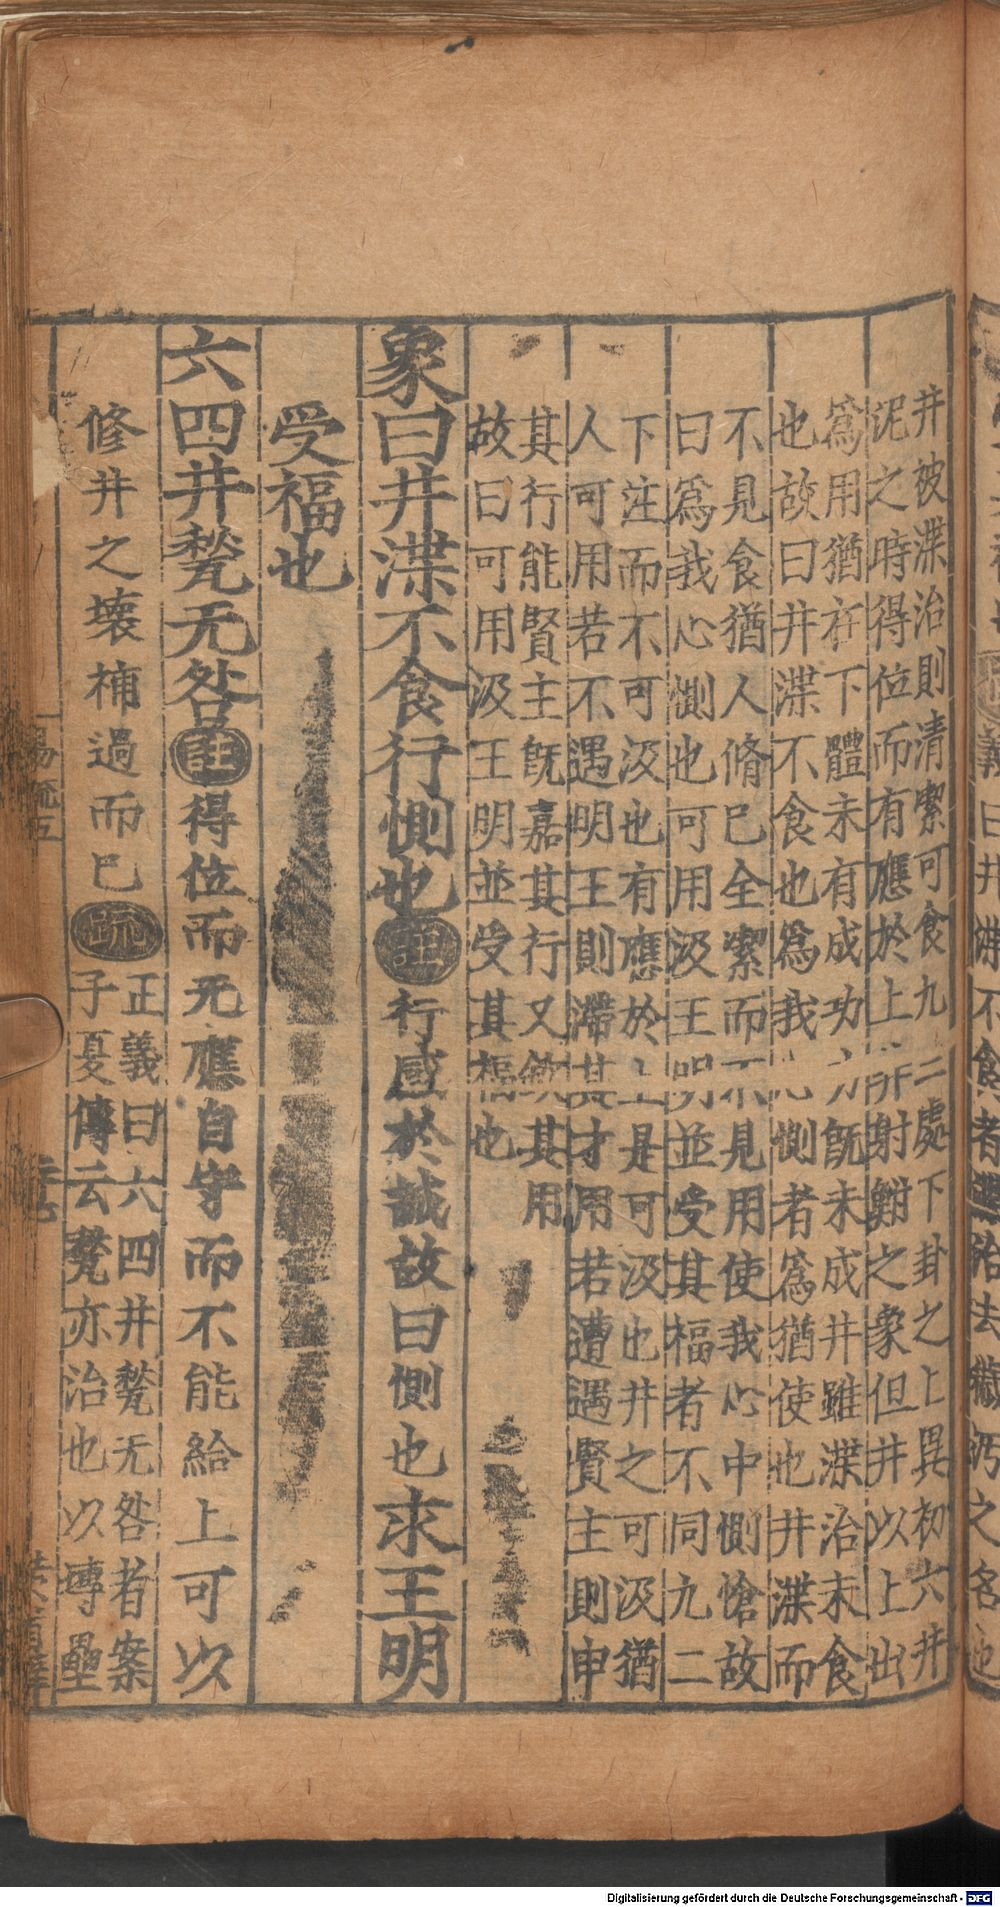 義曰井渫不食者渫治去穢汚之名也
井被渫治則清潔可食九二處下卦之上異初六井
泥之時得位而有應於上非射鮒之象但井以上出
爲用猶在下體未有成功功旣未成井雖渫治未食
也故曰井渫不食也爲我心惻者爲猶使也井渫而
不見食猶人脩巳全潔而不見用使我心中惻愴故
曰爲我心惻也可用汲王明並受其福者不同九二
下注而不可汲也有應於上是可汲也井之可汲猶
人可用若不遇明王則滯其才用若遭遇賢主則申
其行能賢主旣嘉其行又欽其用
故曰可用汲王明並受其福也
象曰井渫不食行惻也註行感於誠故曰惻也求王明
受福也
六四井甃无咎註得位而无應自守而不能給上可以
修井之壞補過而巳疏
正義曰六四井甃无咎者案
子夏傳云甃亦治也以塼壘
易疏五
Digitalisierung gefördert durch die Deutsche Forschungsgemeinschaft - DFG